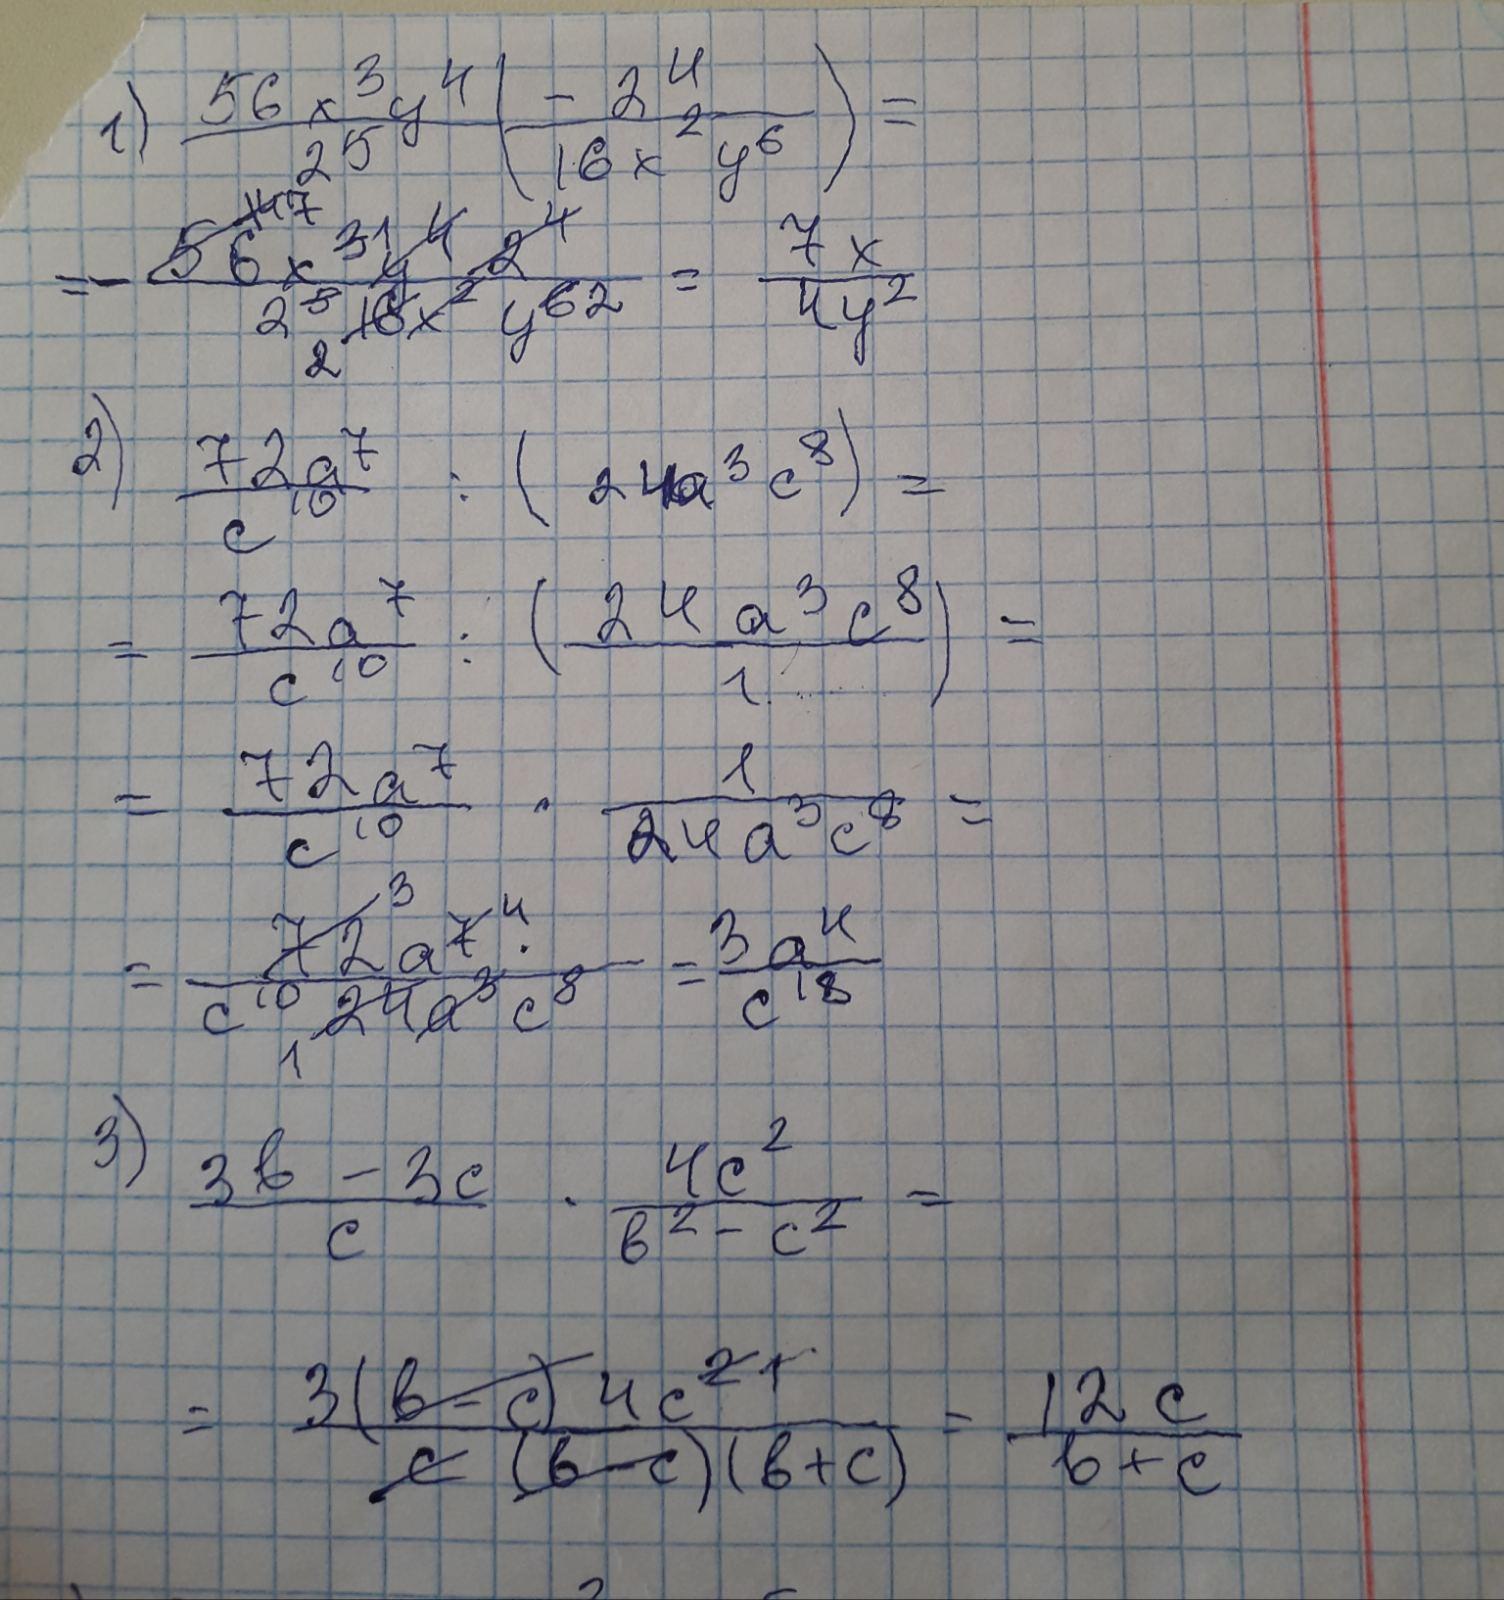 1) 56x³y⁴/2⁵ (-2⁴/16x²y⁶) =
= - 56 14 7 x³ 1 y⁴ 2⁴ / 2⁵ 16 8 2 x² y⁶ 2 = 7x/4y²
2) 72a⁷/c¹⁰ : (24a³c⁸) =
= 72a⁷/c¹⁰ : (24a³c⁸/1) =
= 72a⁷/c¹⁰ · 1/24a³c⁸ =
= 72 3 a⁷ 4 · / c¹⁰ 24 1 a³ c⁸ = 3a⁴/c¹⁸
3) 3b - 3c/c · 4c²/b² - c² =
= 3(b - c) 4c² 1 / c (b - c)(b + c) = 12c/b + c